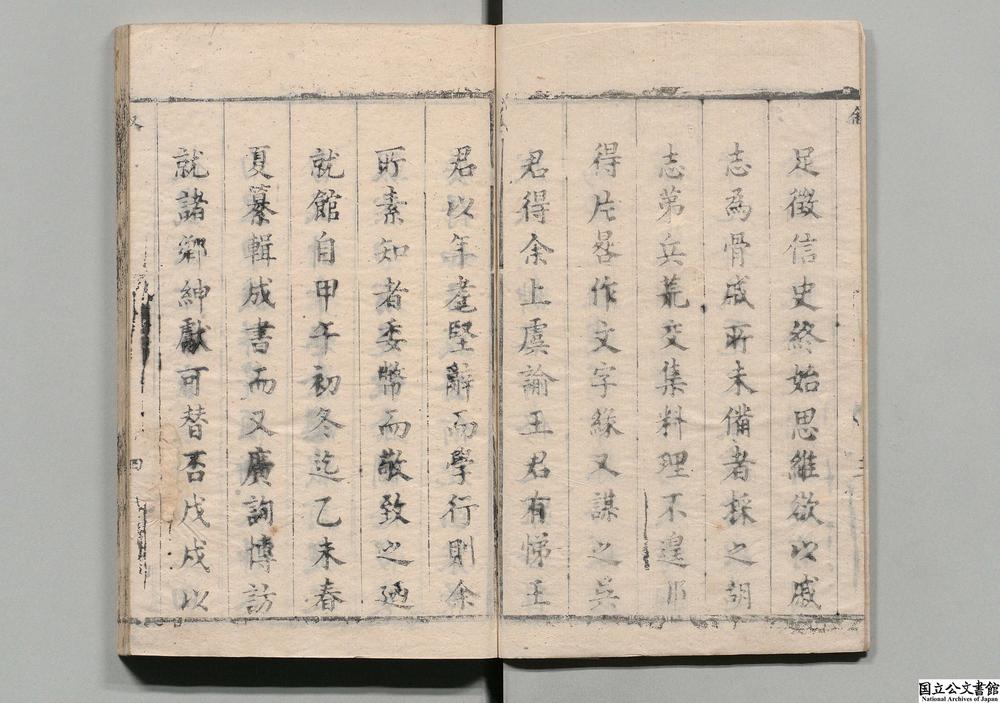 足徵信史終始思維欲以戚
志為骨戚所未備者採之胡
志第兵荒交集料理不遑
得片晷作文字緣又謀之吳
君得余上虞諭王君有悌王
君以年耄堅辭而學行則余
所素知者委幣而敬致之廼
就館自甲午初冬迄乙未春
夏纂輯成書而又廣詢博訪
就諸鄉紳獻可替否戊戌以
四
国立公文書館
National Archives of Japan